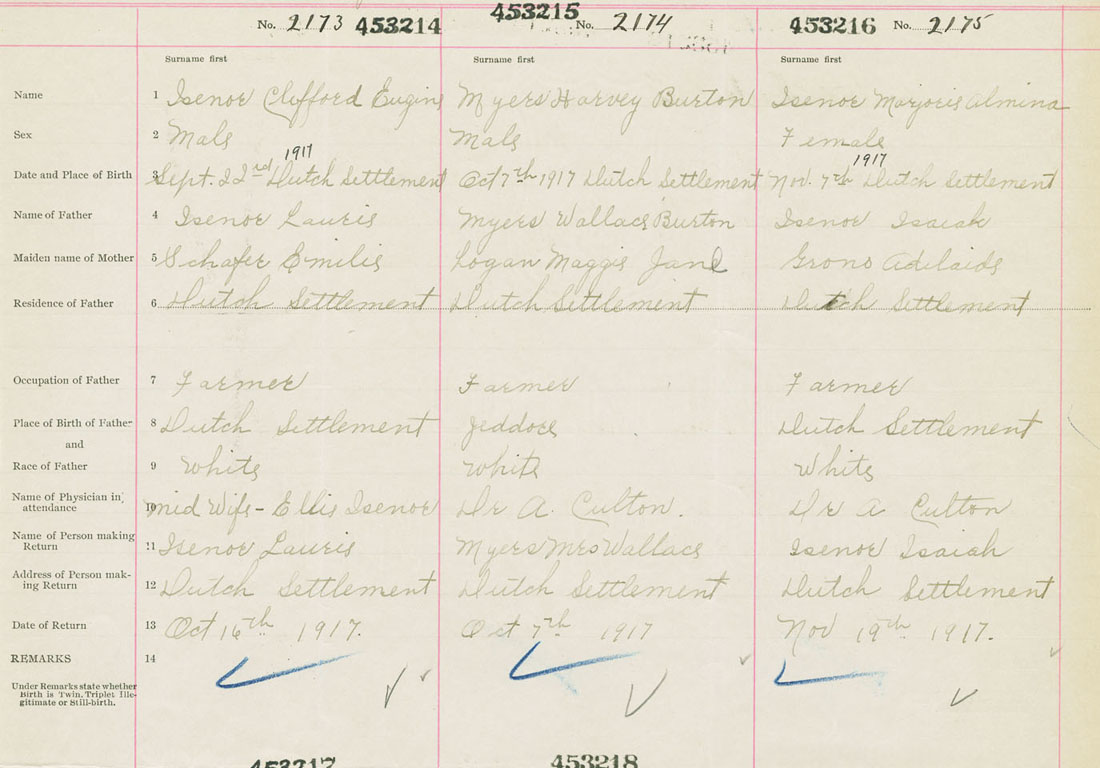 No. 2173 453214 453215 No. 2174 453216 No. 2175
Surname first Surname first Surname first
Name 1 Isenor Clifford Eugine Myers Harvey Burton Isenor Marjorie Almina
Sex 2 Male Male Female
1917 1917
Date and Place of Birth 3 Sept. 22nd Dutch Settlement Oct 7th 1917 Dutch Settlement Nov. 7th Dutch Settlement
Name of Father 4 Isenor Lauris Myers Wallace Burton Isenor Isaiah
Maiden name of Mother 5 Schafer Emilie Logan Maggie Jane Grono Adelaide
Residence of Father 6 Dutch Settlement Dutch Settlement Dutch Settlement
Occupation of Father 7 Farmer Farmer Farmer
Place of Birth of Father 8 Dutch Settlement Jeddore Dutch Settlement
and
Race of Father 9 White White White
Name of Physician in attendance 10 mid Wife - Ellis Isenor Dr A. Culton. Dr A Culton
Name of Person making Return 11 Isenor Lauris Myers Mrs Wallace Isenor Isaiah
Address of Person mak-
ing Return 12 Dutch Settlement Dutch Settlement Dutch Settlement
Date of Return 13 Oct 16th 1917. Oct 7th 1917 Nov 19th 1917.
REMARKS 14
Under Remarks state whether
Birth is Twin, Triplet Ille-
gitimate or Still-birth.
453217 453218